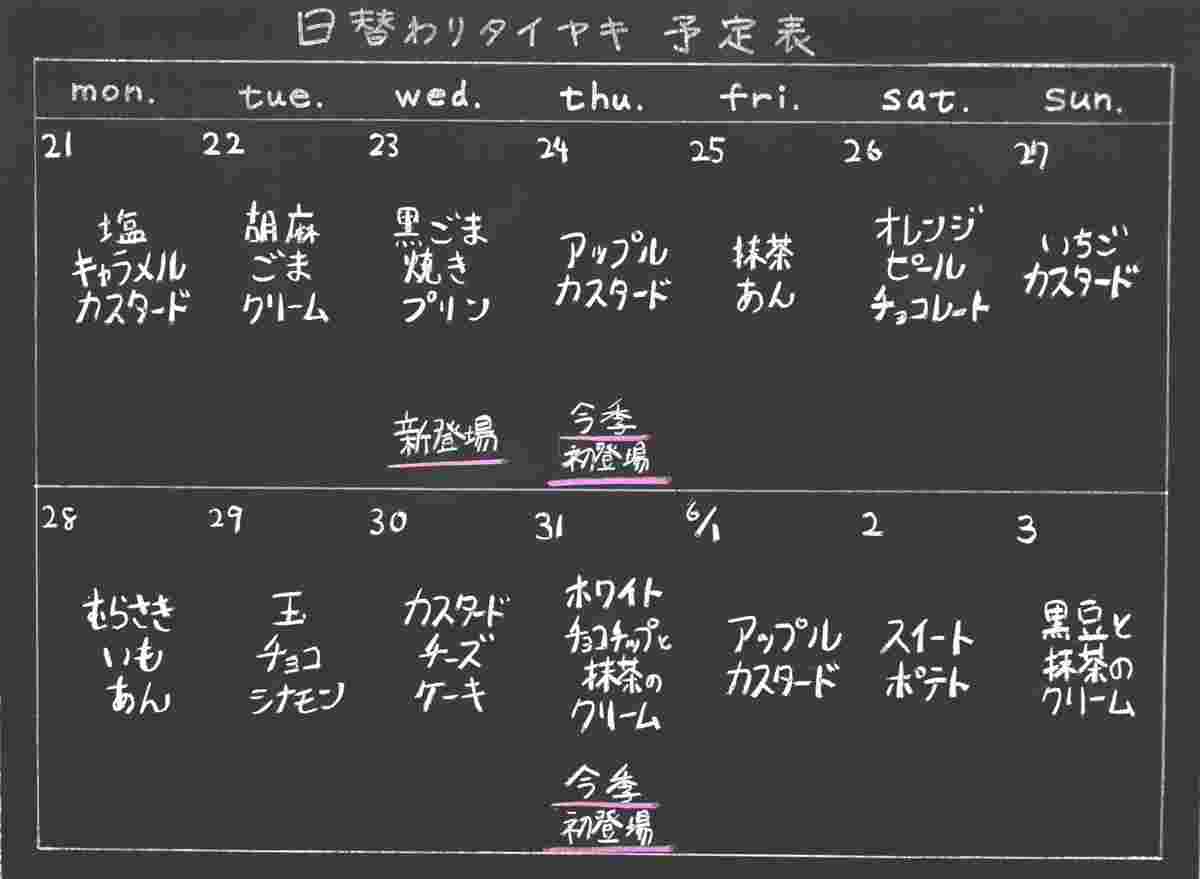 日替わりタイヤキ 予定表
mon. tue. wed. thu. fri. sat. sun.
21
塩
キャラメル
カスタード
22
胡麻
ごま
クリーム
23
黒ごま
焼き
プリン
新登場
24
アップル
カスタード
今季
初登場
25
抹茶
あん
26
オレンジ
ピール
チョコレート
27
いちご
カスタード
28
むらさき
いも
あん
29
玉
チョコ
シナモン
30
カスタード
チーズ
ケーキ
31
ホワイト
チョコチップと
抹茶の
クリーム
今季
初登場
6/1
アップル
カスタード
2
スイート
ポテト
3
黒豆と
抹茶の
クリーム